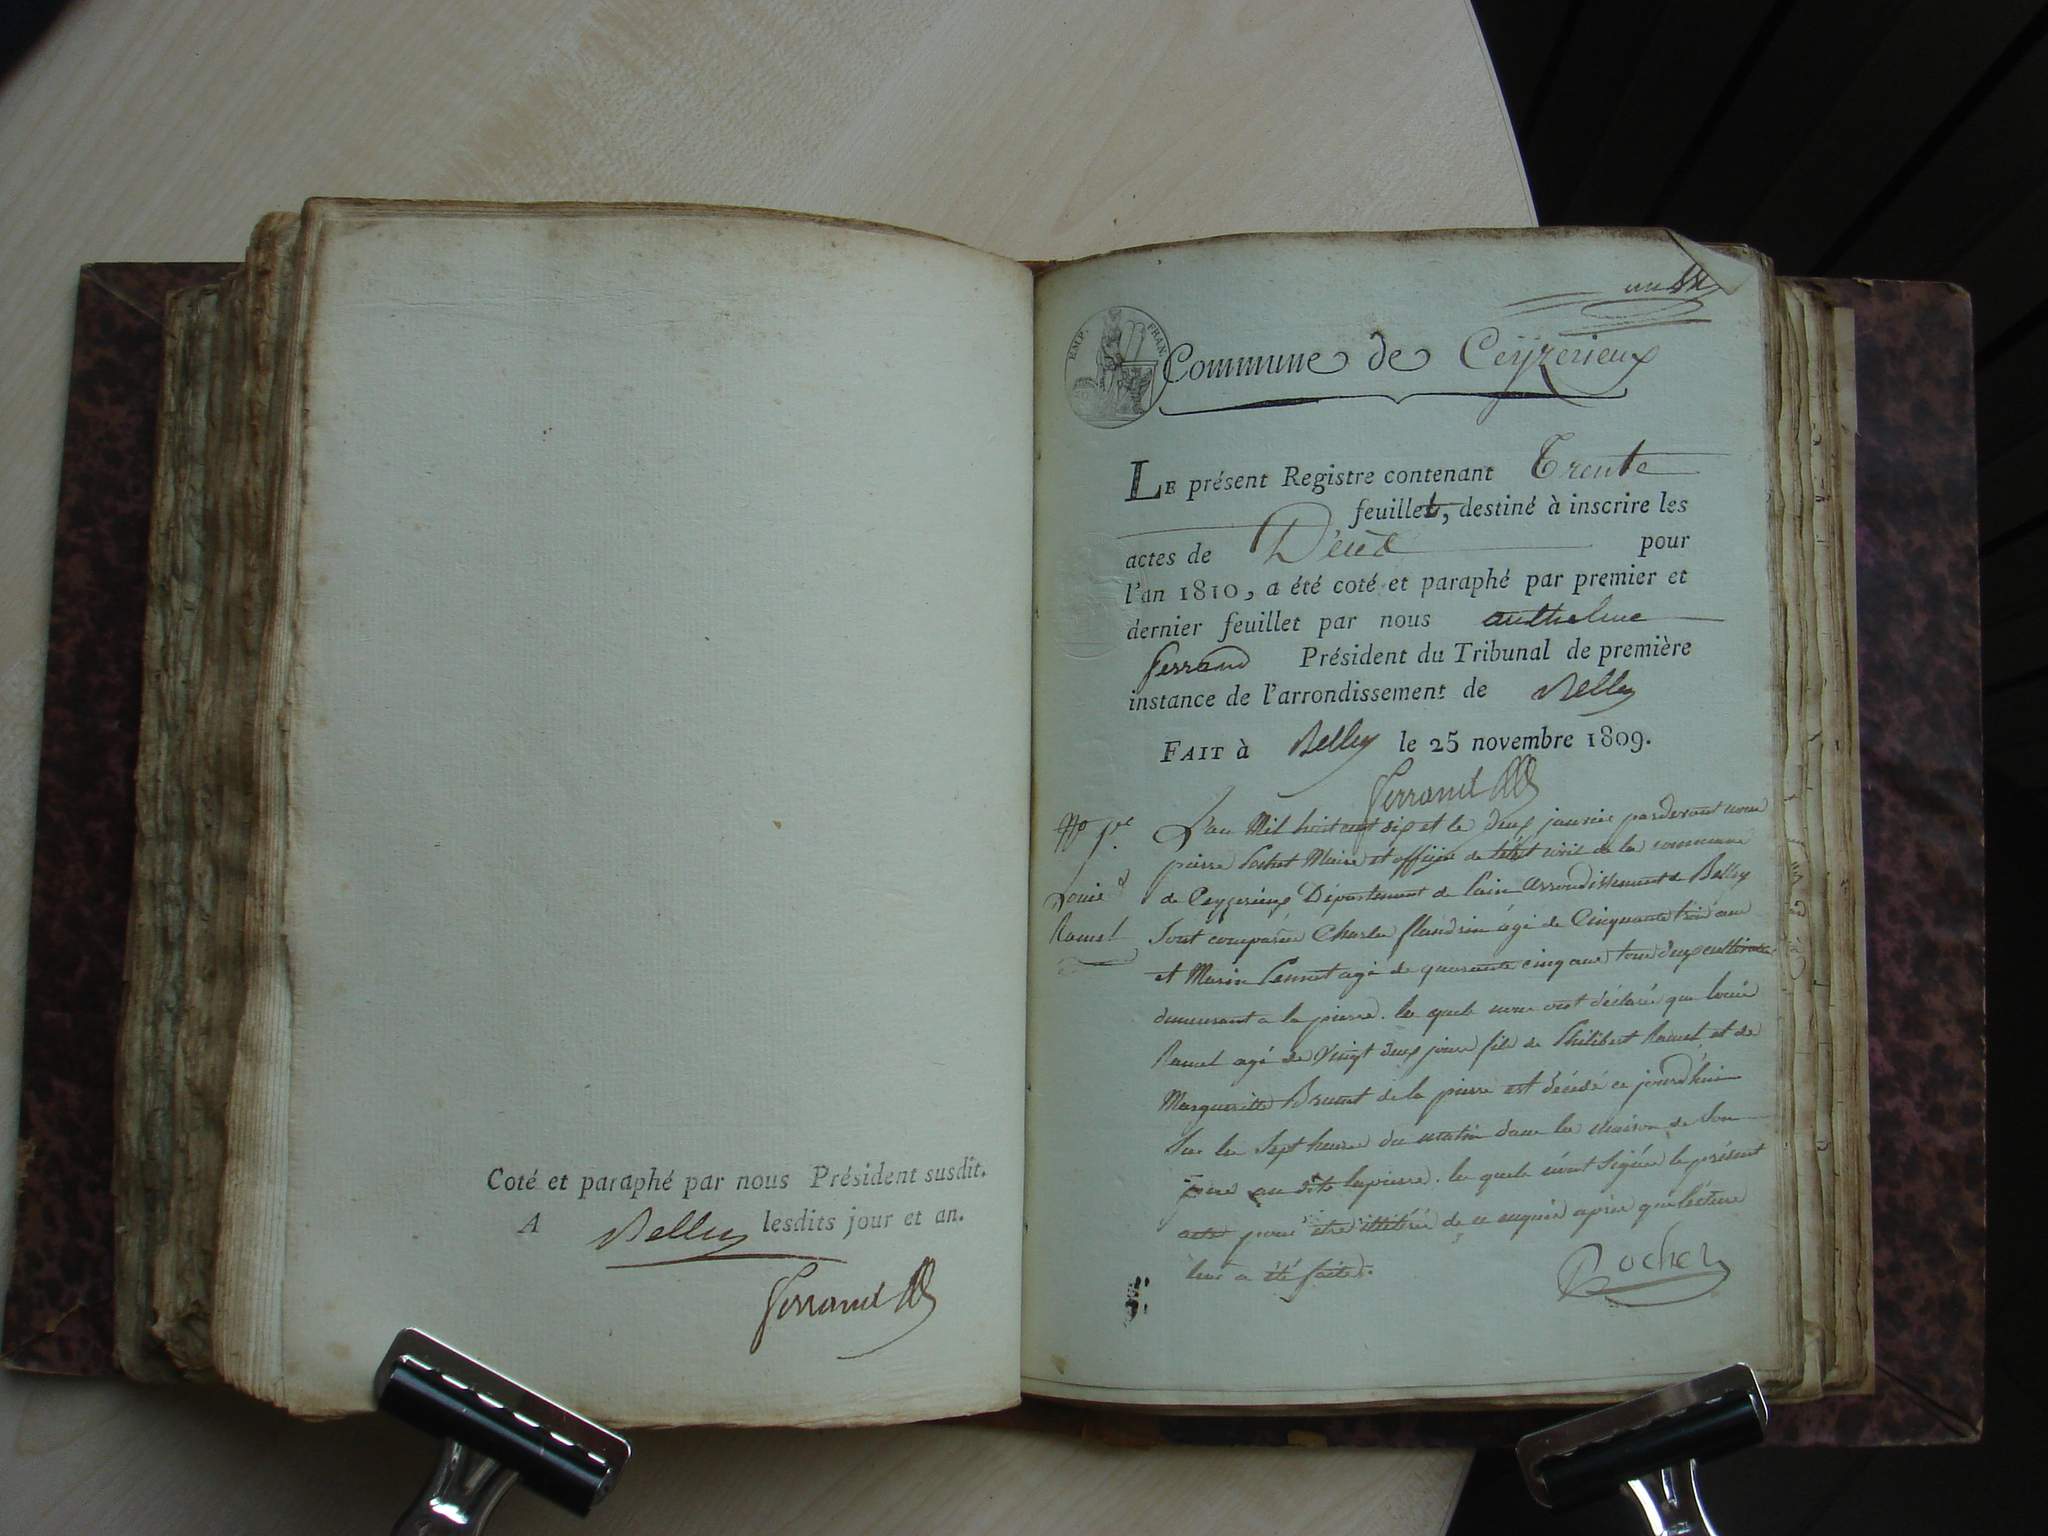 Coté et paraphé par nous Président susdit.
A Belley lesdits jour et an.
Ferrand
EMP. FRAN.
Commune de Ceyzerieux
LE présent Registre contenant Trente
feuillet, destiné à inscrire les
actes de Décès pour
l'an 1810, a été coté et paraphé par premier et
dernier feuillet par nous anthelme
ferrand Président du Tribunal de première
instance de l'arrondissement de Belley
FAIT à Belley le 25 novembre 1809.
Ferrand
No 1er
Louis
Ramel
L'an Mil huit cent dix et le deux janvier pardevant nous
pierre Maire et officier de létat civil de la commune
de Ceyzerieux Département de lain arrondissement de Belley
Sont comparus Charles flandrin agé de Cinquante trois ans
et Marin agé de quarante cinq ans tous deux cultivateurs
demeurant a la pierre. les quels nous ont déclaré que louis
Ramel agé de Vingt deux jours fils de Philibert Ramel et de
Margueritte Brunet de la pierre est décédé ce jourd'hui
Sur les Sept heures du matin dans la maison de Son
père au dit lapierre. les quels n'ont Signés le présent
acte pour être illitérés de ce enquis après que lecture
leur a été faite.
Rocher